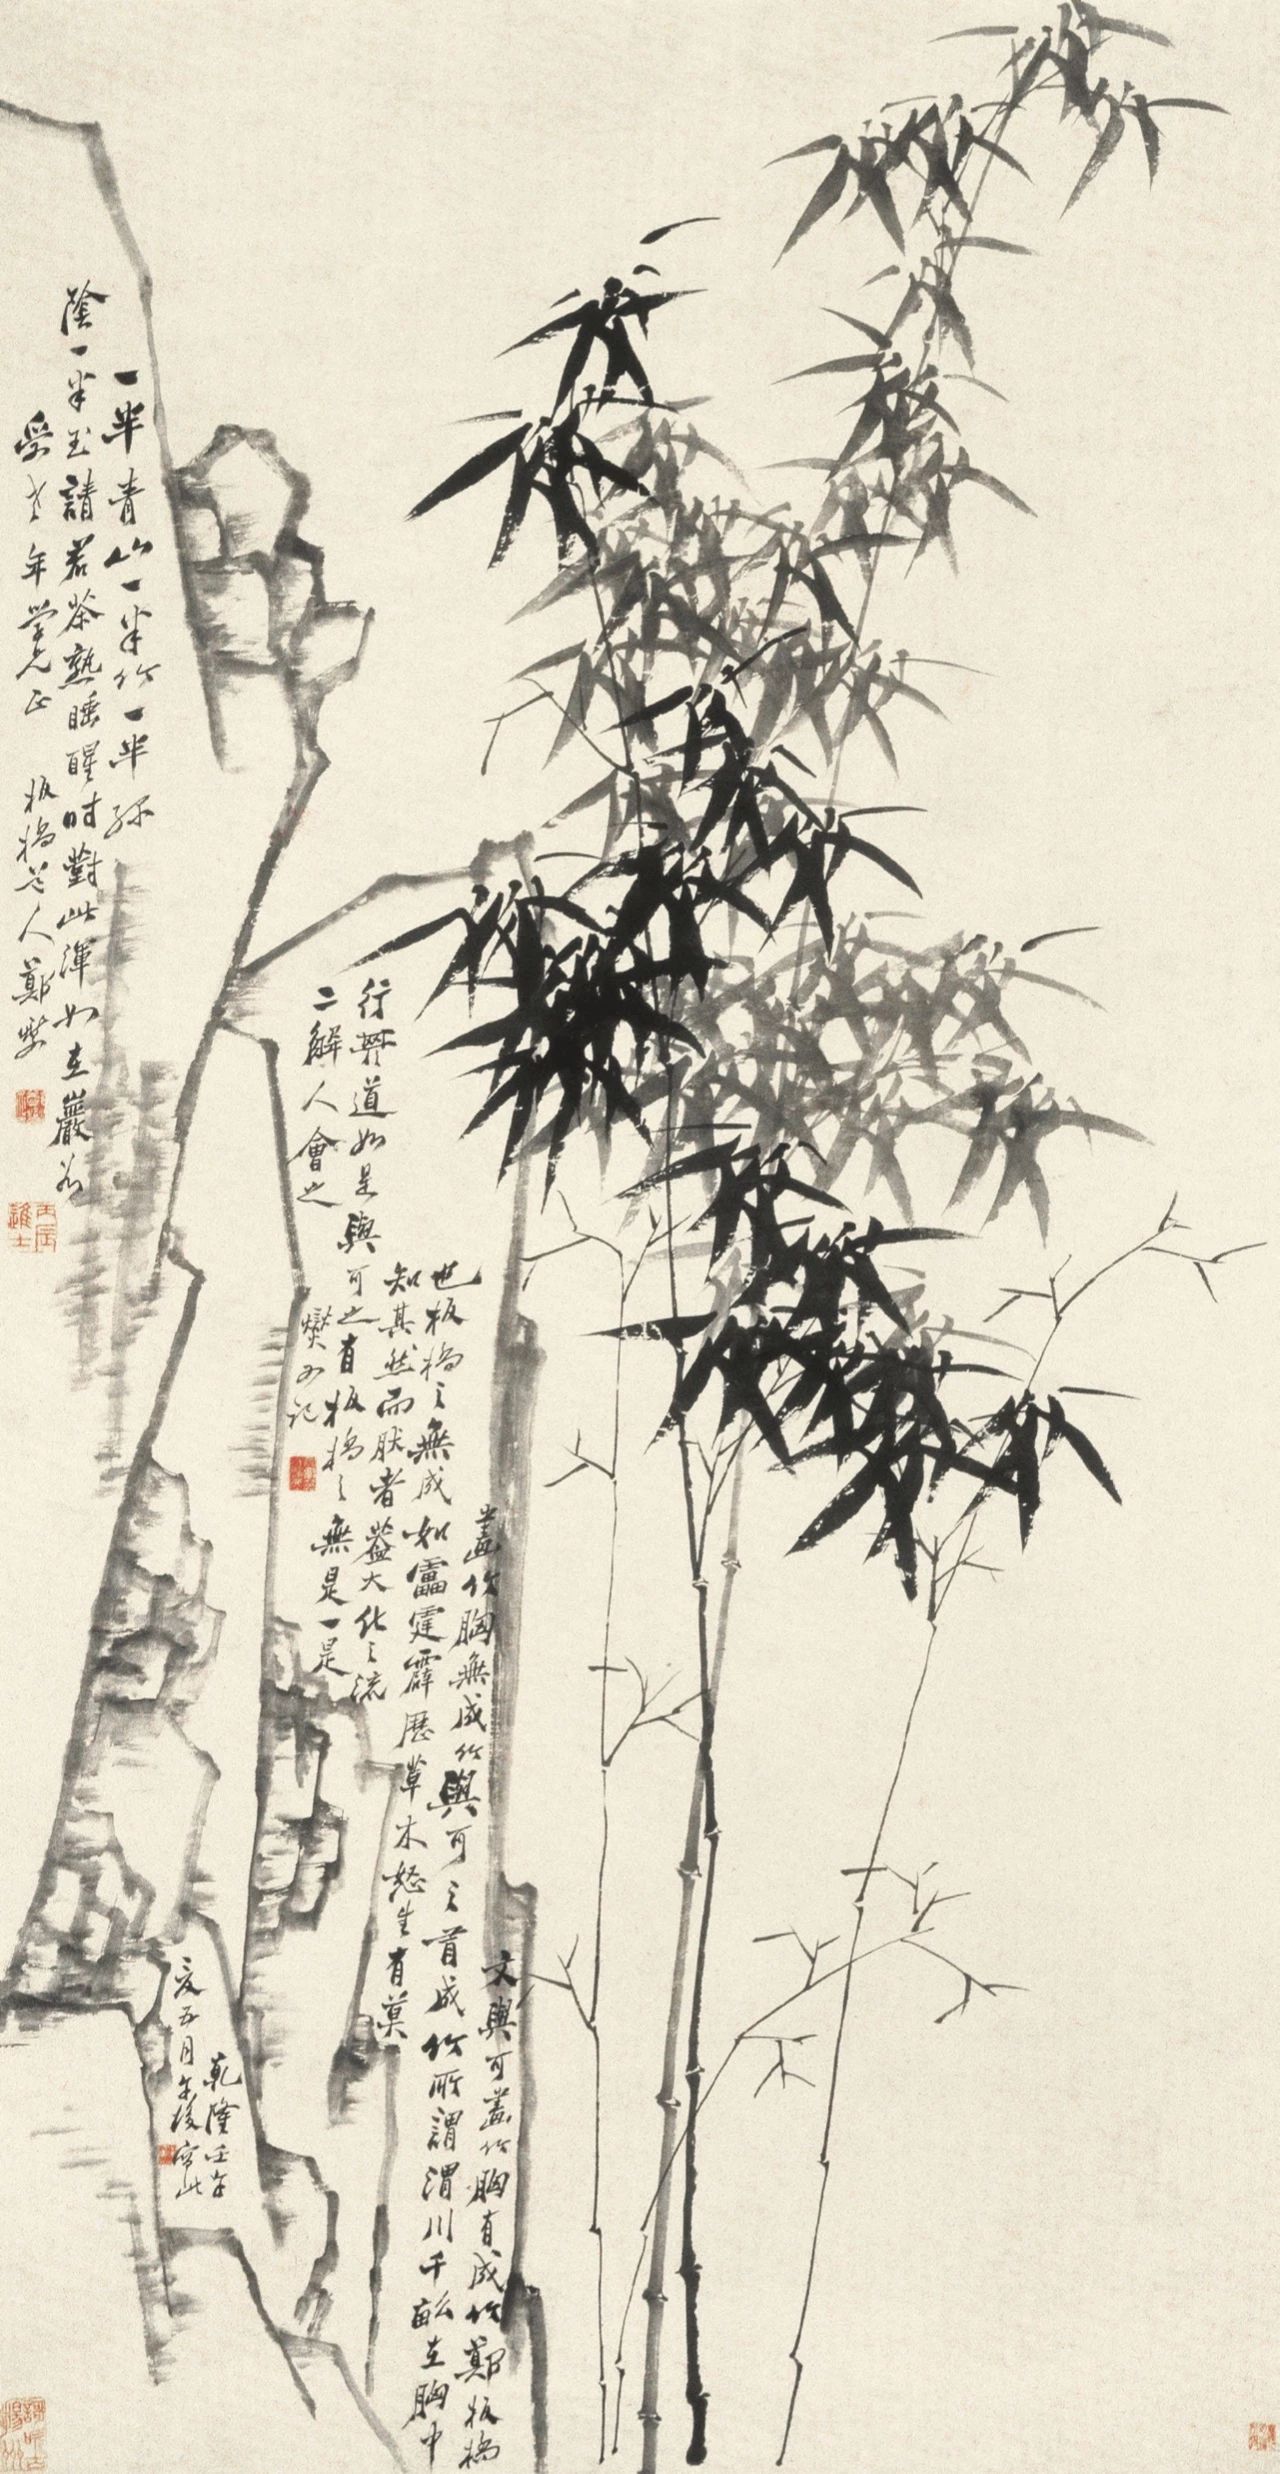 一半青山一半竹一半綠
陰一半玉請君茶熟睡醒時對此渾如在巖谷
受老年學兄正 板橋道人鄭燮
丙辰進士
文與可畫竹胸有成竹鄭板橋
畫竹胸無成竹與可之有成竹所謂渭川千畝在胸中
也板橋之無成如雷霆霹歷草木怒生有莫
知其然而然者蓋大化之流
行其道如是與可之有板橋之無是一是
二解人會之
燮又記
乾隆壬午
夏五月午後寫此